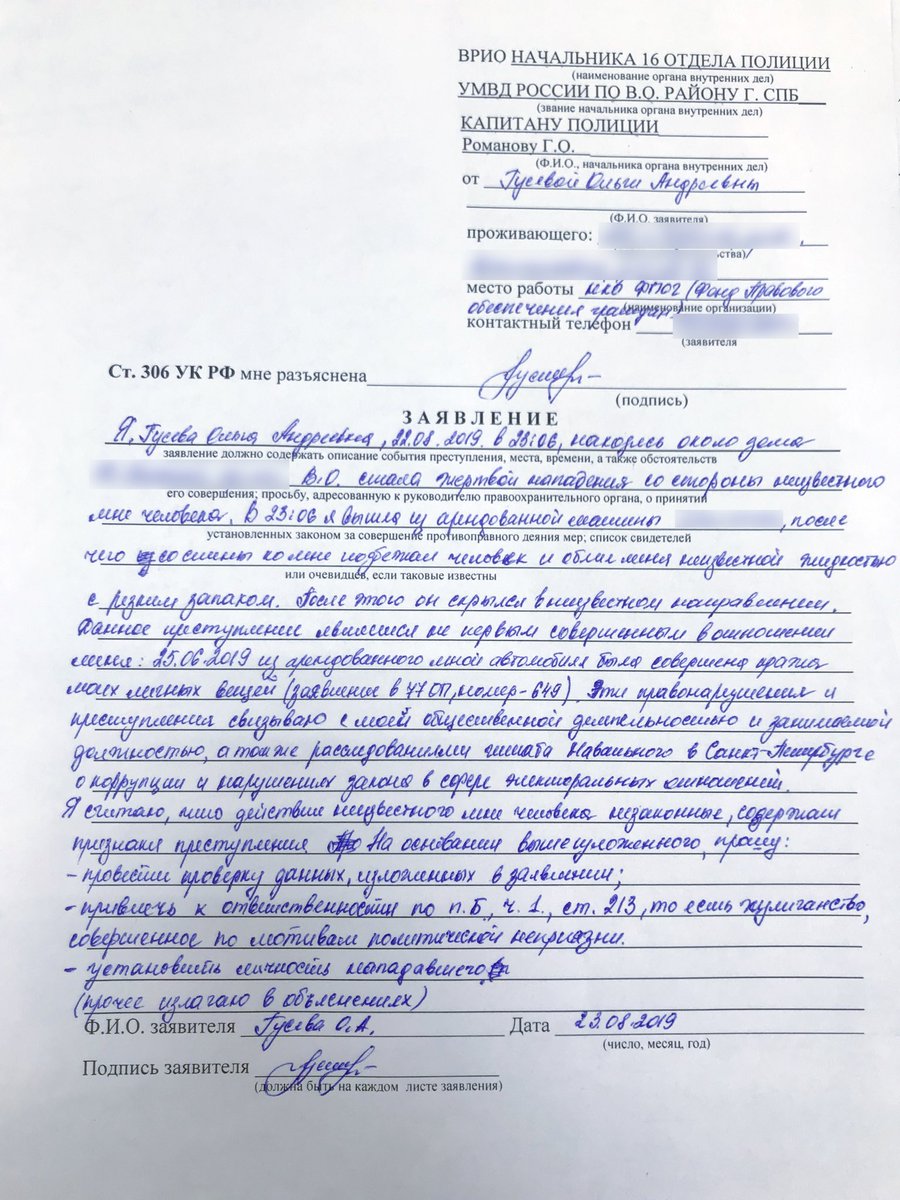 ВРИО НАЧАЛЬНИКА 16 ОТДЕЛА ПОЛИЦИИ
(наименование органа внутренних дел)
УМВД РОССИИ ПО В.О. РАЙОНУ Г. СПБ
(звание начальника органа внутренних дел)
КАПИТАНУ ПОЛИЦИИ
Романову Г.О.
(Ф.И.О., начальника органа внутренних дел)
от Гусевой Ольги Андреевны
(Ф.И.О. заявителя)
проживающего: ,
ства)/
место работы НКО ФПОГ (Фонд Правового
обеспечения граждан)
(наименование организации)
контактный телефон
(заявителя
Ст. 306 УК РФ мне разъяснена
(подпись)
ЗАЯВЛЕНИЕ
Я, Гусева Ольга Андреевна, 22.08.2019 в 23:06, находясь около дома
заявление должно содержать описание события преступления, места, времени, а также обстоятельств
В.О. стала жертвой нападения со стороны неизвестного
его совершения; просьбу, адресованную к руководителю правоохранительного органа, о принятии
мне человека. В 23:06 я вышла из арендованной машины , после
установленных законом за совершение противоправного деяния мер; список свидетелей
чего со спины ко мне подбежал человек и облил меня неизвестной жидкостью
или очевидцев, если таковые известны
с резким запахом. После этого он скрылся в неизвестном направлении.
Данное преступление являлось не первым совершенным в отношении
меня: 25.06.2019 из арендованного мной автомобиля была совершена кража
моих личных вещей (заявление в 77 ОП, номер - 649). Эти правонарушения и
преступления связываю с моей общественной деятельностью и занимаемой
должностью, а также расследованиями штаба Навального в Санкт-Петербурге
о коррупции и нарушениях закона в сфере электоральных отношений.
Я считаю, что действия неизвестного мне человека незаконные, содержат
признаки преступления. На основании вышеизложенного, прошу:
- провести проверку данных, изложенных в заявлении;
- привлечь к ответственности по п.Б, ч. 1., ст. 213, то есть хулиганство,
совершенное по мотивам политической неприязни.
- установить личность нападавшего
(прочее излагаю в объяснениях)
Ф.И.О. заявителя Гусева О.А. Дата 23.08.2019
(число, месяц, год)
Подпись заявителя
(должна быть на каждом листе заявления)